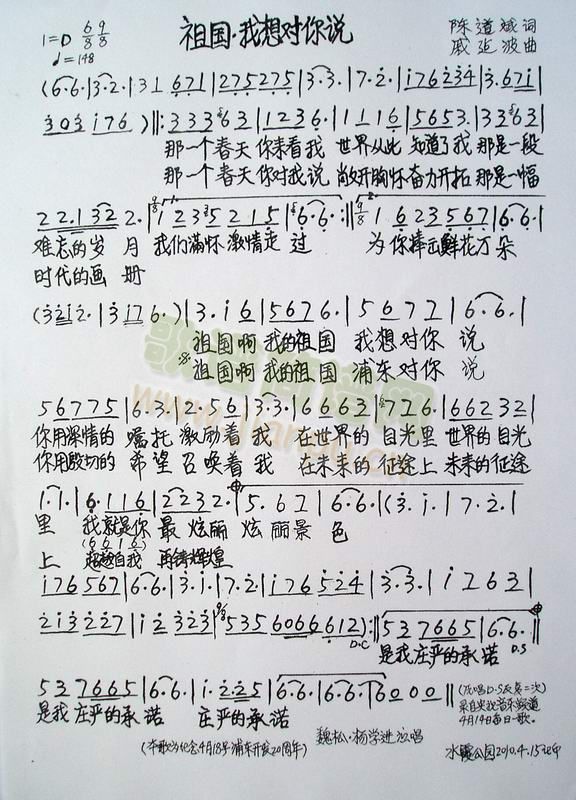 祖国·我想对你说
1=D 6/8 9/8
♩=148
陈道斌词
戚延波曲
(6·6·|3·2·|31 671|275275|3·3·|7·2·|i76234|3·67i|
303 i76)‖:33363|1236·|1116|5653·|33363|
那一个春天你来看我 世界从此 知道了我 那是一段
那一个春天你对我说 敞开胸怀奋力开拓 那是一幅
22·132 2·|1235215|6·6·:‖1623567|6·6·|
难忘的岁月 我们满怀激情走过 为你捧出鲜花万朵
时代的画册
(321 2·|3176·)|3·i6|5676·|5677|6·6·|
祖国啊 我的祖国 我想对你 说
祖国啊 我的祖国 浦东对你 说
56775|6·3·|2·56|3·3·|6663|726·|66232|
你用深情的 嘱托 激励着我 在世界的 目光里 世界的目光
你用殷切的 希望 召唤着我 在未来的 征途上 未来的征途
1·1·|6·116|2232·|5·67|6·6·|(3·i·|7·2·|
里 我就是你 最炫丽 炫丽景 色
(6 6 1 6)
上 超越自我 再铸辉煌
i76567|6·6·|3·i·|7·2|i76524|3·3·|i263|
213227|i2323|535 6066612):‖537665|6·6·‖
D.C 是我庄严的承诺 D.S
537665|6·6·|i·225|6·6·|6·6·|6000‖
是我庄严的承诺 庄严的承诺
4月14日每日一歌。
(本歌为纪念4月18号浦东开发20周年)
魏松·杨学进 演唱
水霞公园2010.4.15